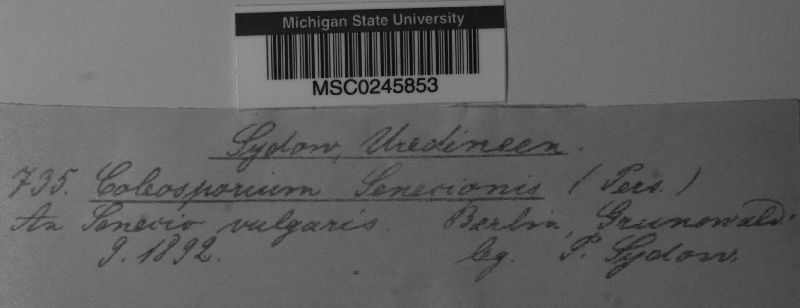 Michigan State University
MSC0245853
Sydow, Uredineen.
735. Coleosporium Senecionis (Pers.)
An Senecio vulgaris. Berlin, Grunewald.
9. 1892. leg. P. Sydow.